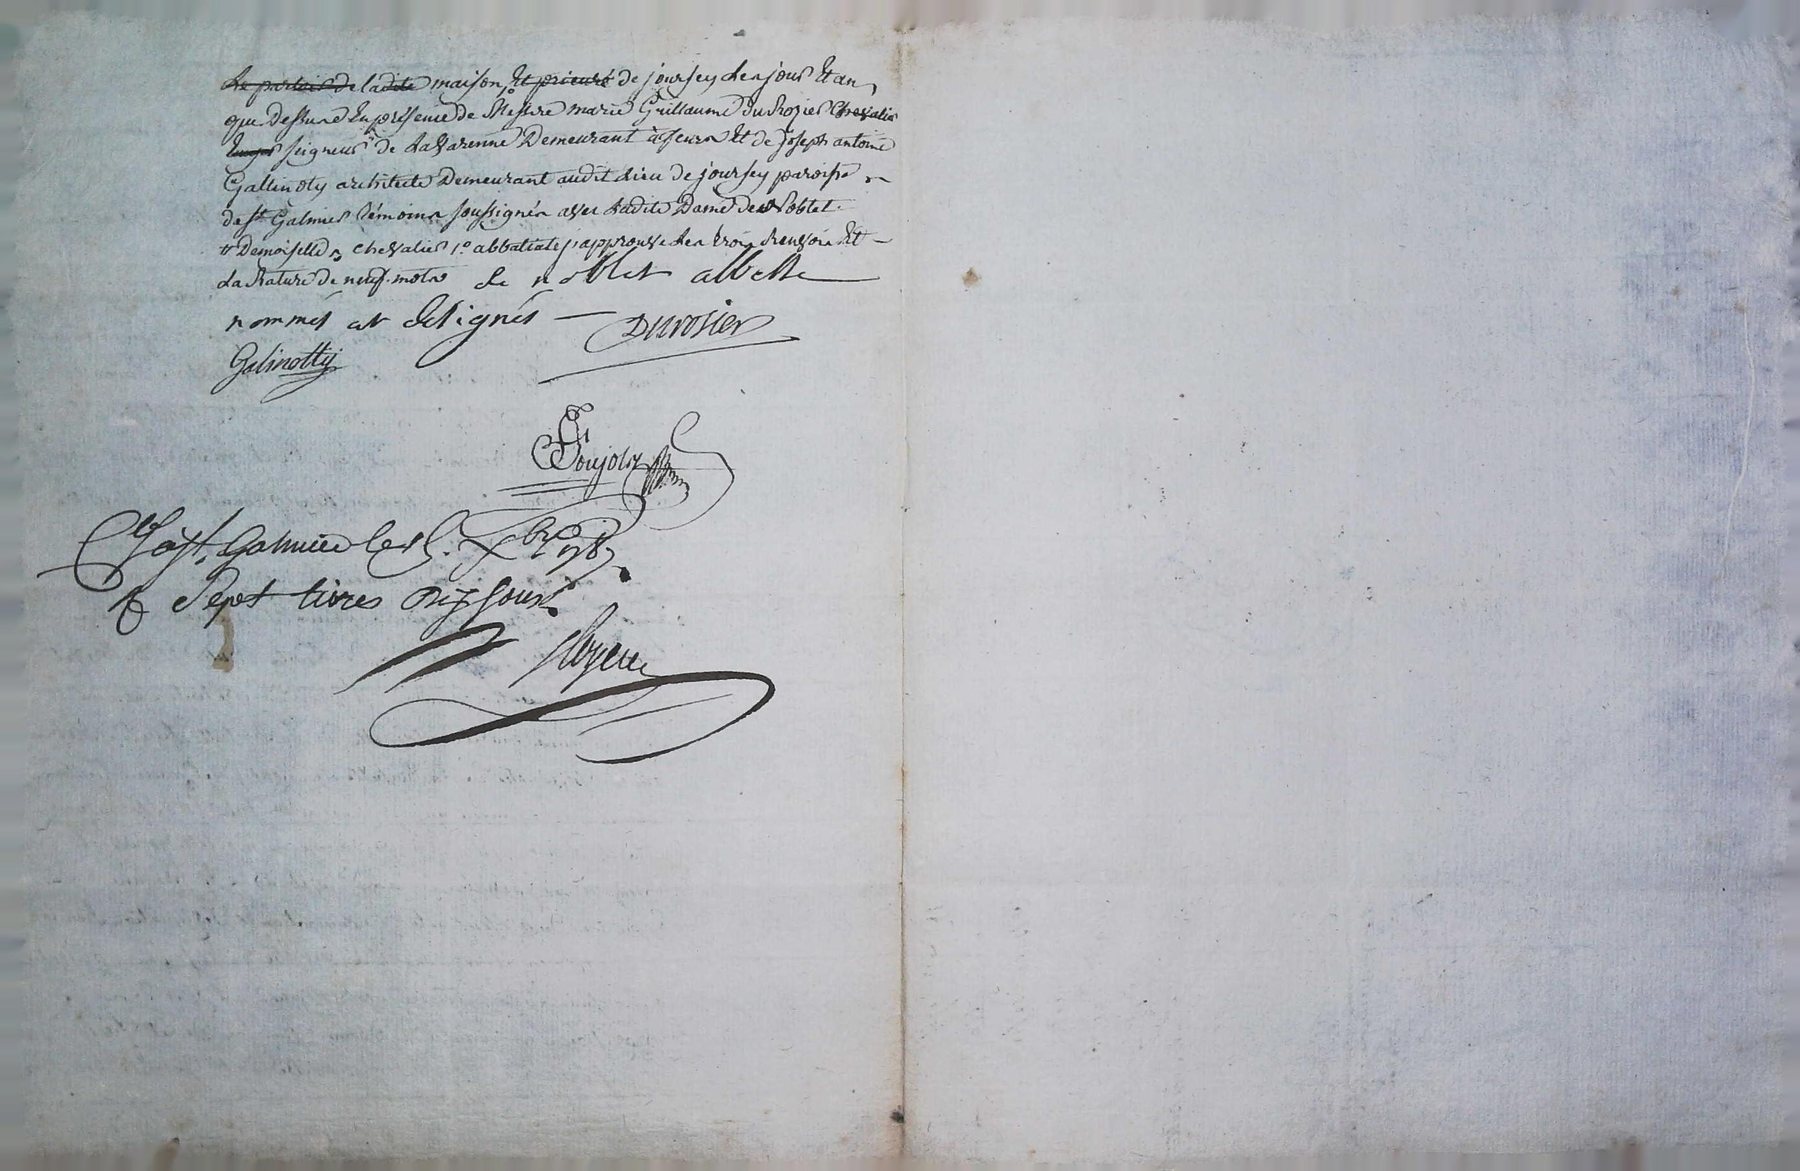 Le parloir de ladite maison 1° Et prieuré de joursey les jour Et an
que dessus En présence de Messire marie Guillaume Du Rozier Chevalier
seigneur de La Varenne Demeurant à feurs Et de joseph antoine
Gallinoty architecte Demeurant audit Lieu de joursey paroisse
de St Galmier témoins soussignés avec Ladite Dame de Noblet
Demoiselle chevalier 1° abbatiale j'approuve Les trois Renvois Et
La Rature de neuf mots de noblet abbesse
nommés et désignés Durosier
Galinotty
Poujols
a St. Galmier le Xbre 1787
R sept livres dix sous